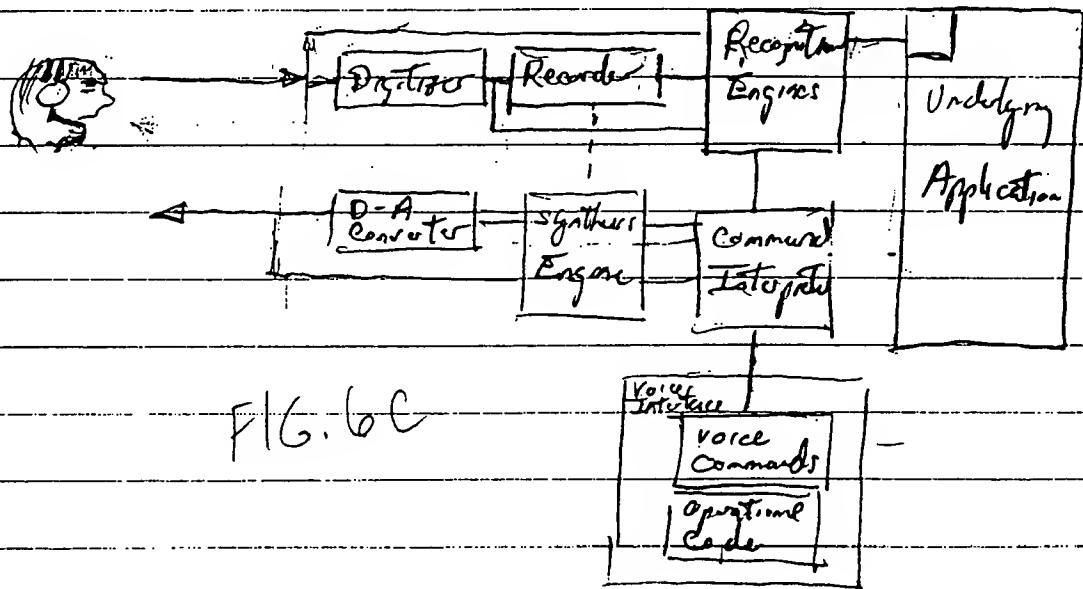 Digitizer
Recorder
Recognition
Engines
Underlying
Application
D-A
Converter
Synthesis
Engine
Command
Interpreter
Voice
Interface
Voice
Commands
Operational
Code
FIG. 6C